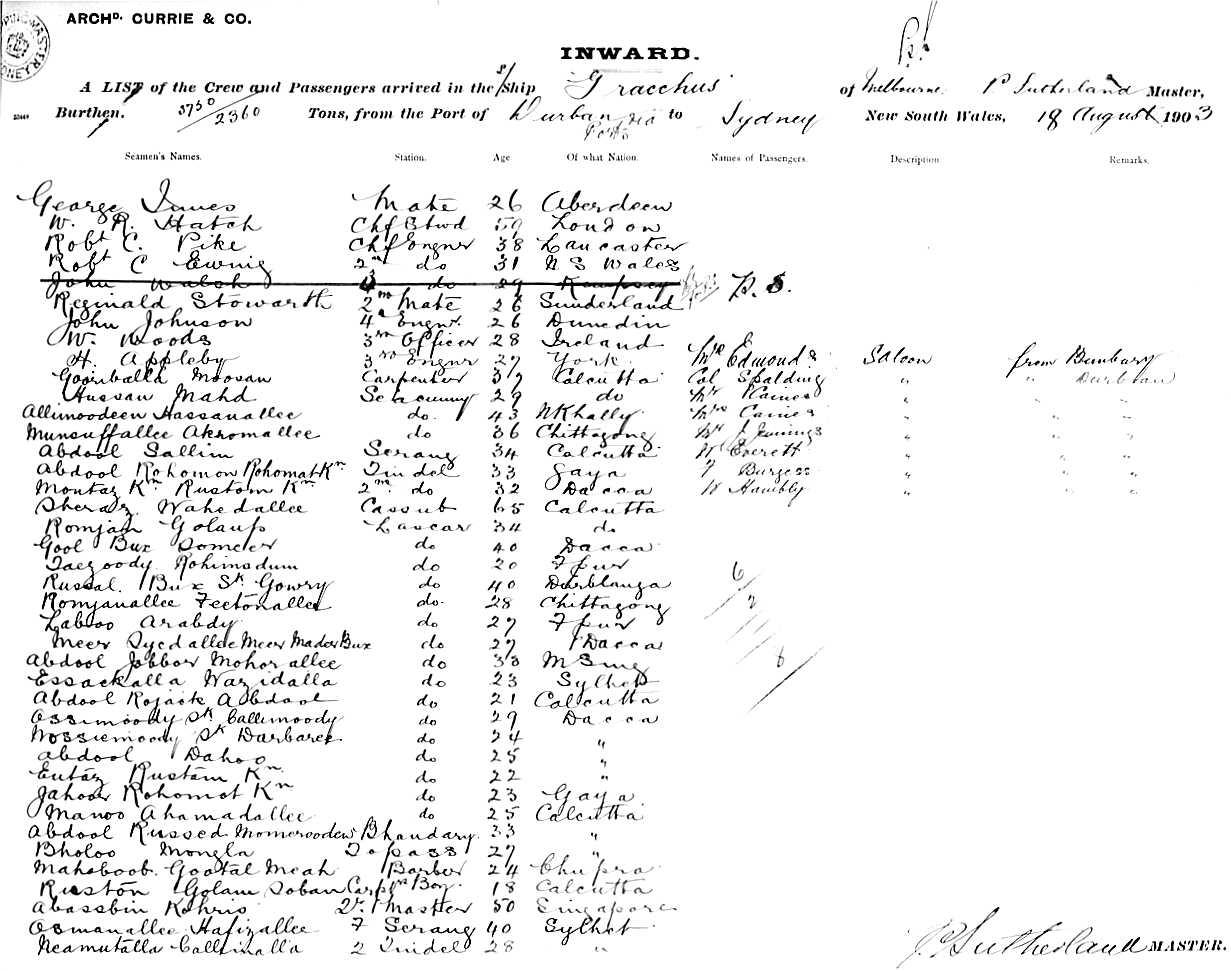 ARCHD. CURRIE & CO.
INWARD.
A LIST of the Crew and Passengers arrived in the S/Ship Gracchus of Melbourne P Sutherland Master,
Burthen, 3730/2360 Tons, from the Port of Durban via Ports to Sydney New South Wales, 18 August 1903
Seamen's Names. Station. Age Of what Nation. Names of Passengers. Description Remarks.
George Innes Mate 26 Aberdeen
W. R. Hatch Chf Stwd 59 London
Robt C. Pike Chf Engnr 38 Lancaster
Robt C Ewing 2nd do 31 N S Wales
John Walsh do 29 Kempsey P. S.
Reginald Stowarth 2nd Mate 26 Sunderland
John Johnson 4th Engnr. 26 Dunedin
W. Woods 3rd Officer 28 Ireland
H. Appleby 3rd Engnr 27 York Mrs Edmonds Saloon from Bunbury
Gooriballa Moosan Carpenter 37 Calcutta Col Spalding " " Durban
Hussan Mahd Seacunny 29 do Mr Caines " " "
Allimoodeen Hassanallee do. 43 NKhally Mrs Caines " " "
Munsuffallee Akromallee do 36 Chittagong Mr J Jennings " " "
Abdool Sallim Serang 34 Calcutta W Everett " " "
Abdool Rohomon Rohomat Kn Tindel 33 Gaya F Burgess " " "
Montaz Kn Rustom Kn 2nd do 32 Dacca W Hambly " " "
Sheraz Wahedallee Cassub 65 Calcutta
Romjan Golaup Lascar 34 do
Gool Bux Someer do 40 Dacca
Taegoody Rohimsdum do 20 F pur
Russal Bux Sk Gowry do 40 Durblanga
Romjanallee Fectonallee do 28 Chittagong
Laboo Arabdy do 27 F pur
Meer Syedallee Meer Madar Bux do 27 Dacca
Abdool Jobbor Mohorallee do 33 M Sing
Essackalla Wazidalla do 23 Sylhet
Abdool Rojack Abdool do 21 Calcutta
Ossimoody Sk Callimoody do 29 Dacca
Nossiemoody Sk Darbaree do 24 "
Abdool Dahoo do 25 "
Entaz Rustam Kn do 22 "
Jahoor Rohomot Kn do 23 Gaya
Manoo Ahamadallee do 25 Calcutta
Abdool Russed Momerooden Bhandary. 33 "
Bholoo Mongla Topass 27 "
Maheboob Goatal Meah Barber 24 Chupra
Ruston Golam Soban Carpr Boy 18 Calcutta
Abassbin Kohris 50 Singapore
Osmanallee Hafizallee F Serang 40 Sylhet
Neamutalla Callimalla 2 Tindel 28 "
P Sutherland MASTER.